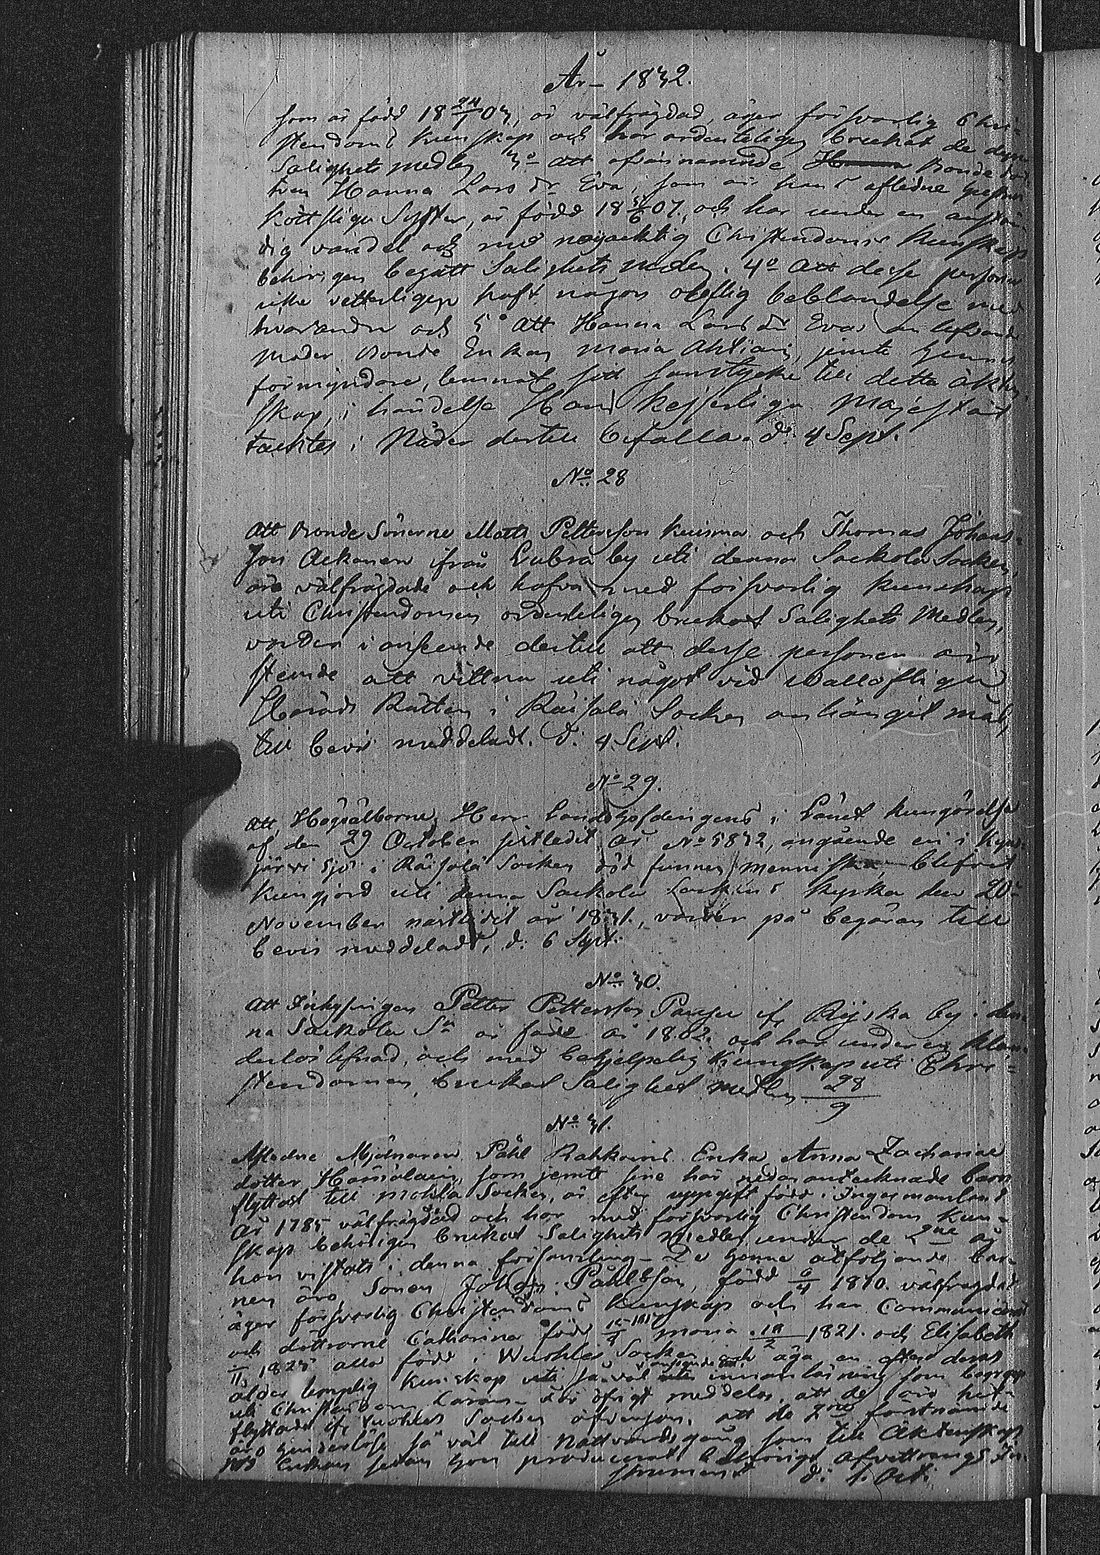 År 1832.
som är född 18 24/1 03, är välfrägdad, äger försvarlig Chri-
stendoms kunskap och har ordenteligen brukat de dyra
Salighets medlen 3o att ofvannämnde Bonde dot-
tren Hanna Lars dr Eva, som är hans aflidne
köttsliga Syster, är född 18 07, och har under en anstän-
dig vandel och med nöjaktig Christendoms kunskap
behörigen begått Salighets medlen. 4o Att desse personer
icke vetterligen haft någon oloflig beblandelse med
hvarandra och 5o Att Hanna Lars dr Evas
moder Bonde Enkan Maria Ahtiain, jemte hennes
förmyndare, lemnat sitt samtycke till detta äkten-
skap, i händelse Hans Kejserliga Majestät
täcktes i Nåder dertill befalla. d. 4 Sept.
No 28
Att Bonde Sönerne Matts Pettersson Kuisma och Thomas Johans-
son Ackanen ifrån Lubra by uti denna Sackola Socken,
äro välfrägdade och hafva med försvarlig kunskap
uti Christendomen ordenteligen brukat Salighets Medlen,
varder i anseende dertill att desse personer äro
stämde att vittna uti något vid wällofliga
Härads Rätten i Räisälä Socken anhängigt mål,
till bevis meddeladt. d. 4 Sept.
No 29.
Att Högvälborne Herr Landshöfdingens i Länet kungörelse
af den 29 October sistledit år No 5832, angående en i
järvi Sjö i Räisälä Socken död funnen menniska, blifvit
kungjord uti denna Sackola Sockens kyrka den 20de
November nästledit år 1831, varder på begäran till
bevis meddeladt, d. 6 Sept.
No 30.
Att Inhysingen Petter Pettersson if. Röiska by i den-
na Sackola Sn är född år 1802. och har under en klan-
derlös lefnad, och med behjelpelig kunskap uti Chri-
stendomen, brukat Salighets medlen 28/9
No 31.
Afledne Mjölnaren Påhl Rahkoins Enka Anna Zacharias
dotter Hämäläin, som jemte sine här nedan antecknade barn
flyttat till Mohla Socken, är efter uppgift född i Ingermanland
År 1785 välfrägdad och har med försvarlig Christendoms kun-
skap behörigen brukat Salighets medlen under de 2ne år
hon vistats i denna församling. De henne åtföljande bar-
nen äro Sonen Johan Påhlsson, född 6/4 1810. välfrägdad
äger försvarlig Christendoms kunskap och har Communicerat
och döttrarne Catharina född Maria 1821. och Elisabeth
1825 alla född i Wuohles Socken och äga en efter deras
ålder lemplig kunskap uti så väl innanläsning som begrepp
uti Christendoms Läran. För öfrigt meddelas, att de äro hit
flyttade if. Wuohles Socken att de 2ne förstnämnde
äro hinderlöse så väl till Nattvardsgång som till Äktenskap
hvad Enkan sedan hon producerat behörigt afvittrings In-
strument d. 1. Oct.